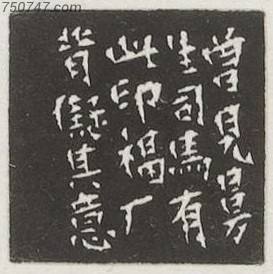 750747.com
曾見曼
生司馬有
此印福厂
背儗其意